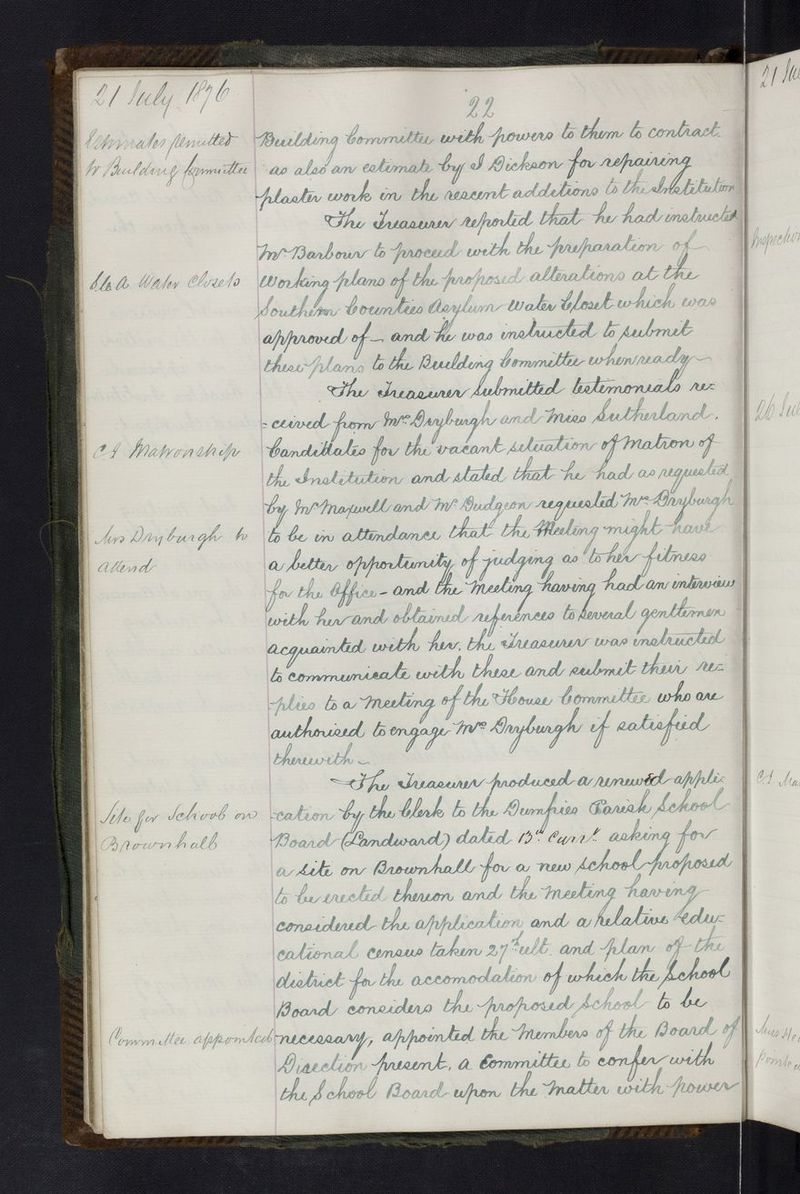 21 July 1876
22
Estimates remitted
to Building Committee
Building Committee with powers to them to contract.
as also an estimate by J Dickson for repairing
plaster work in the rescent additions to the Institution
The Treasurer reported that he had instructed
Mr Barbour to proceed with the preparation of
S.C.A. Water Closets
Working plans of the proposed alterations at the
Southern Counties Asylum Water Closet which was
approved of – and he was instructed to submit
these plans to the Building Committee when ready –
The Treasurer submitted testimonials re=
=ceived from Mrs Dryburgh and Miss Sutherland,
C.I. Matronship
Candidates for the vacant situation of Matron of
the Institution and stated that he had as requested
by Mr Maxwell and Mr Dudgeon requested Mrs Dryburgh
Mrs Dryburgh to
attend
to be in attendance that the Meeting might have
a better opportunity of judging as to her fitness
for the Office – and the Meeting having had an interview
with her and obtained references to several gentlemen
acquainted with her, the Treasurer was instructed
to communicate with these and submit their re=
=plies to a Meeting of the House Committee who are
authorised to engage Mrs Dryburgh if satisfied
therewith –
The Treasurer produced a renewed appli=
Site for School on
Brownhall
=cation by the Clerk to the Dumfries Parish School
Board (Landward) dated 13th Currt. asking for
a site on Brownhall for a new School proposed
to be erected thereon and the Meeting having
considered the application and a relative edu=
cational census taken 27th ult. and plan of the
district for the accomodation of which the School
Board considers the proposed School to be
Committee appointed
necessary, appointed the Members of the Board of
Direction present, a Committee to confer with
the School Board upon the Matter with power
21 Ju
Inspection
26 Jul
C.I. Ma